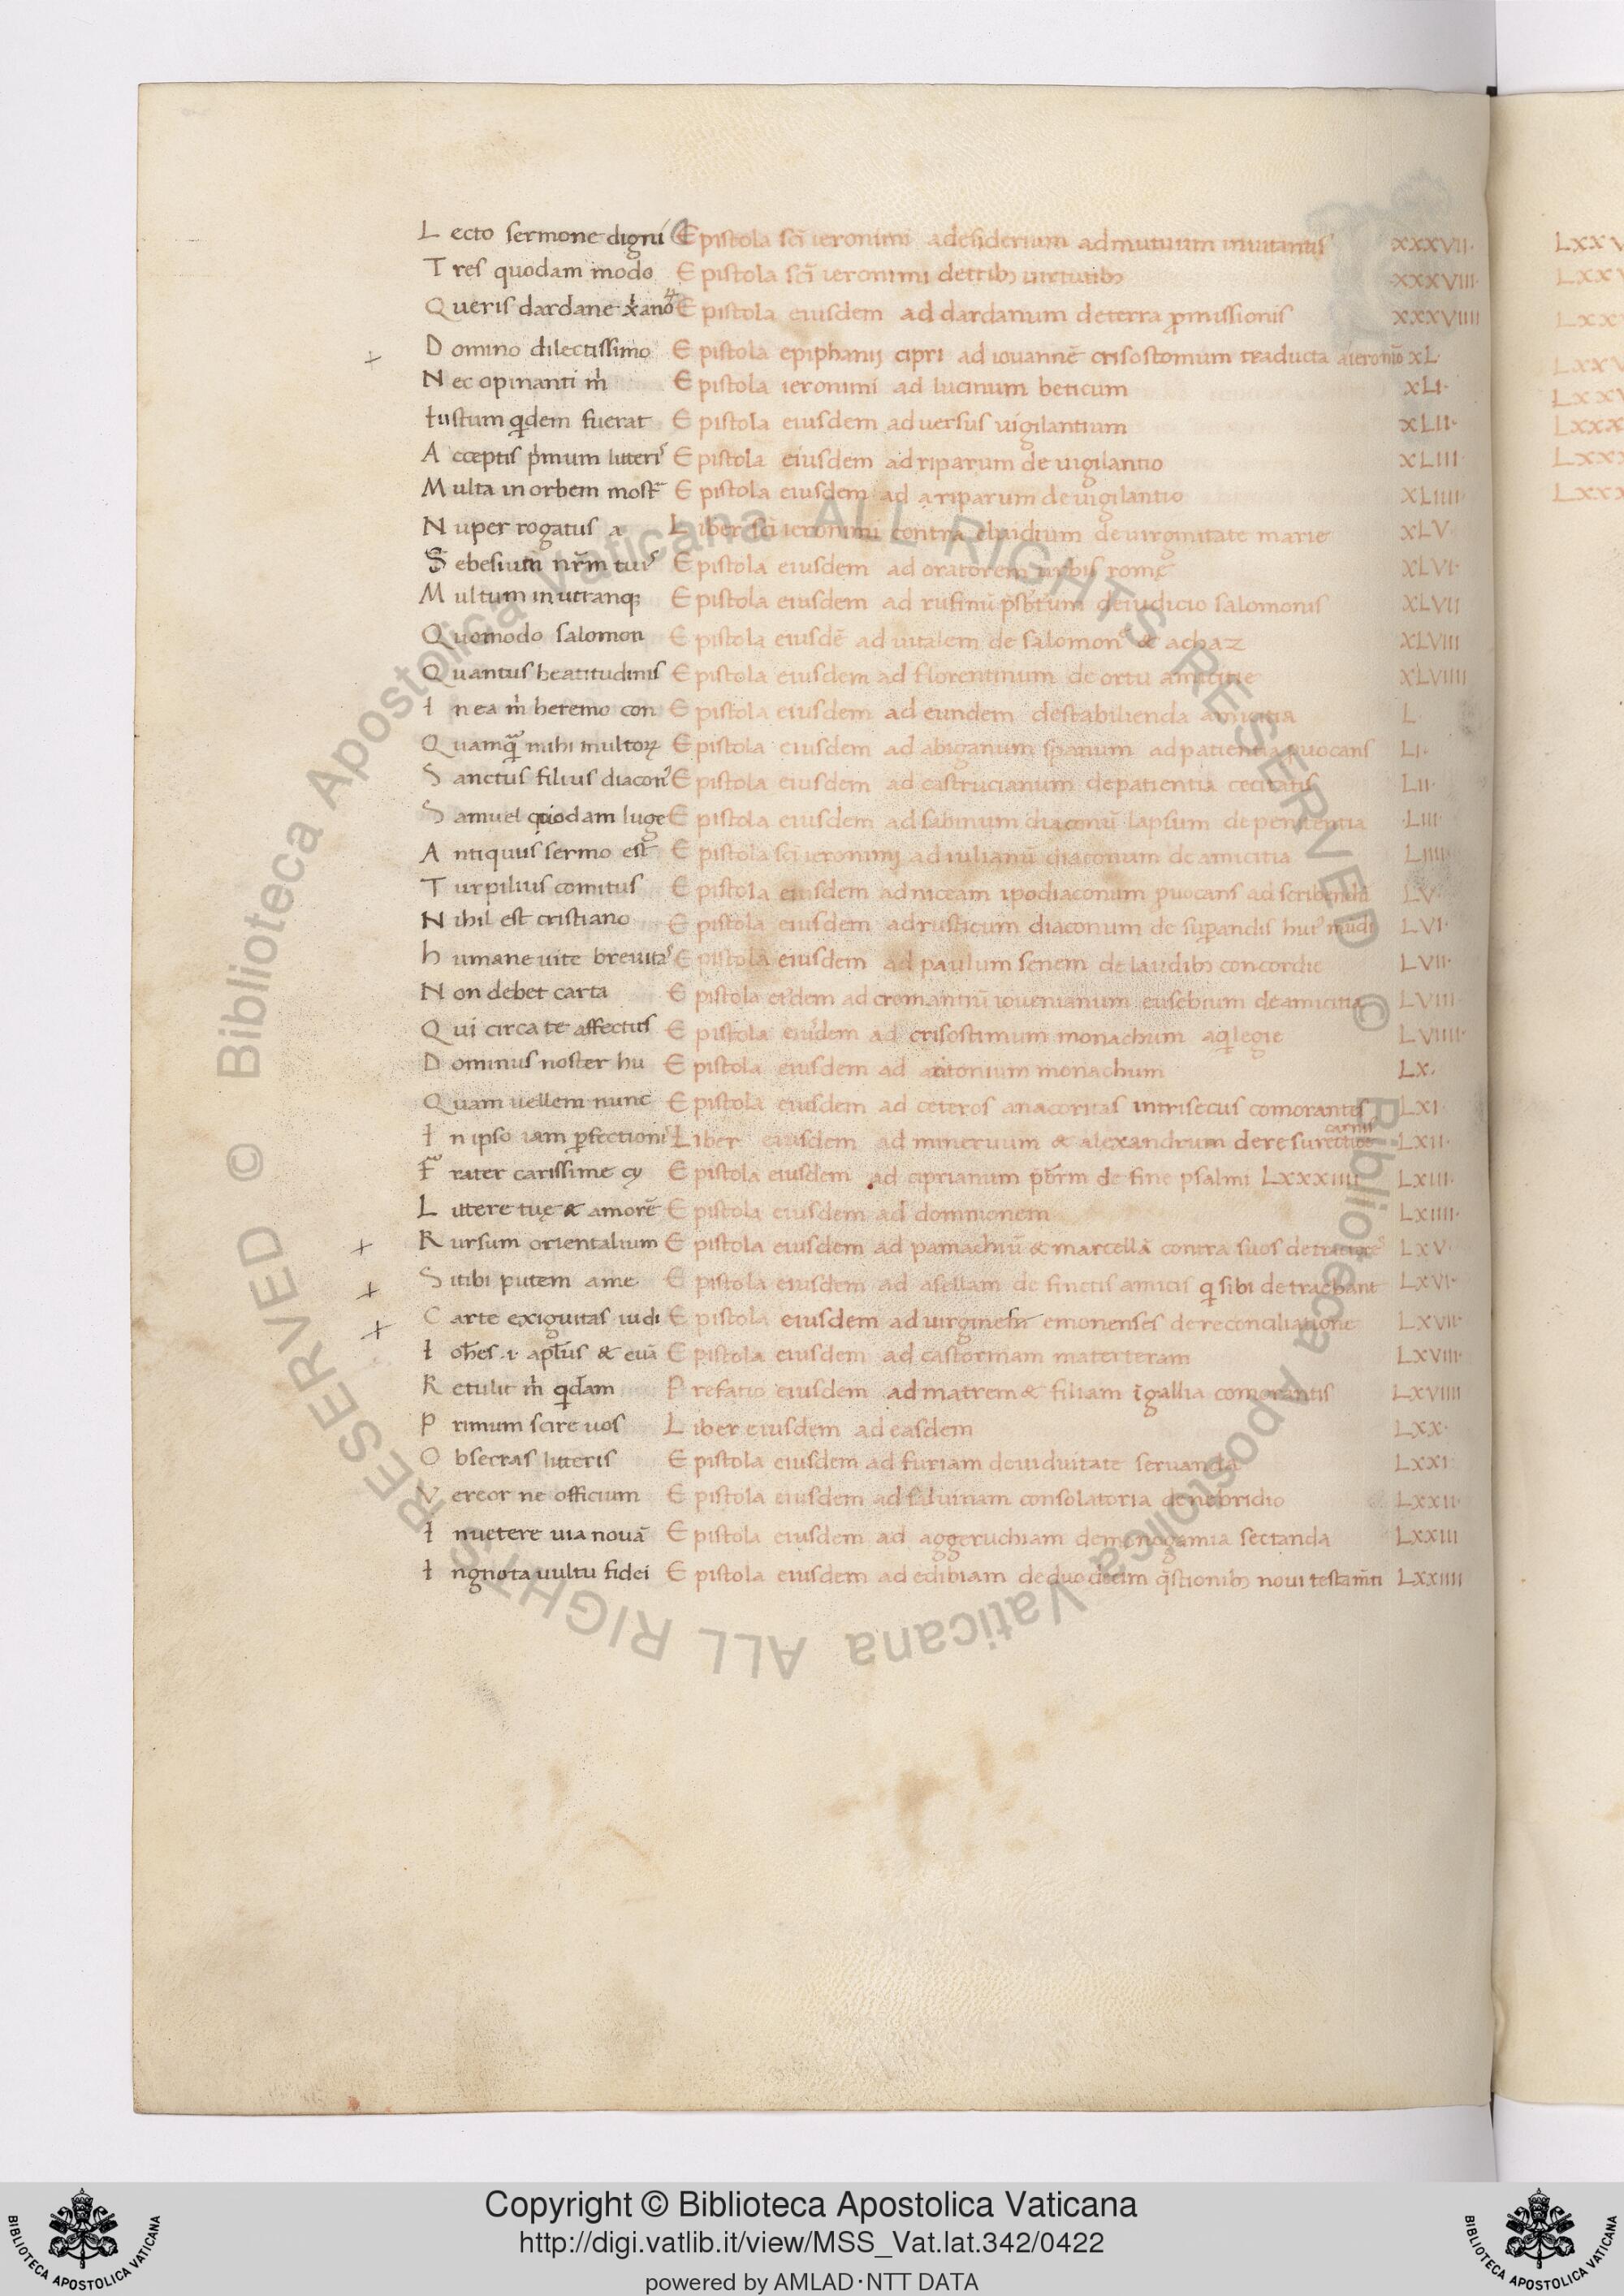 Lecto sermone digni Epistola sc̄i ieronimi adesiderium ad mutuum inuitantis XXXVII·
Tres quodam modo Epistola sc̄i ieronimi de trib; uirtutib; XXXVIII·
Queris dardane xp̄ianoꝝ Epistola eiusdem ad dardanum de terra ꝓmissionis XXXVIIII
Domino dilectissimo Epistola epiphanij cipri ad iouannē crisostomum traducta a ieronīo XL·
Nec opinanti m̍ Epistola ieronimi ad lucinum beticum XLI·
Iustum qͥdem fuerat Epistola eiusdem aduersus uigilantium XLII·
Acceptis pͥmum litteriˢ Epistola eiusdem ad riparum de uigilantio XLIII·
Multa in orbem mostᵃ Epistola eiusdem ad ariparum de uigilantio XLIIII·
Nuper rogatus a Liber sc̄i ieronimi contra eluidium de uirginitate marie XLV·
Sebesium nr̄m tuiˢ Epistola eiusdem ad oratorem urbis romę XLVI·
Multum in utranq; Epistola eiusdem ad rufinū p̄sbr̄tum de iudicio salomonis XLVII
Quomodo salomon Epistola eiusdē ad uitalem de salomonᵉ & achaz XLVIII
Quantus beatitudinis Epistola eiusdem ad florentinum de ortu amicitie XLVIIII
In ea m̍ heremo con Epistola eiusdem ad eundem de stabilienda amicitia L·
Quamqᵃ mihi multoꝝ Epistola eiusdem ad abiganum spanum ad patientia ꝓuocans LI·
Sanctus filius diaconꝰ Epistola eiusdem ad castrucianum de patientia cecitatis LII·
Samuel quodam luge Epistola eiusdem ad sabinum diaconū lapsum de penitentia ·LIII·
Antiquus sermo est Epistola sc̄i ieronimj ad iulianū diaconum de amicitia LIIII·
Turpilius comitus Epistola eiusdem ad niceam ipodiaconum ꝓuocans ad scribendū LV·
Nihil est cristiano Epistola eiusdem ad rusticum diaconum de suꝑandis huiꝰ mūdi LVI·
humane uite breuitaˢ Epistola eiusdem ad paulum senem de laudib; concordie LVII·
Non debet carta Epistola eiꝰdem ad cromantiū iouenianum eusebium de amicitia LVIII·
Qui circa te affectus Epistola eiuꝰdem ad crisostimum monachum aqͥlegie LVIIII·
Dominus noster hu Epistola eiusdem ad antonium monachum LX·
Quam uellem nunc Epistola eiusdem ad ceteros anacoritas intrisecus comorantes LXI·
In ipso iam ꝓfectioniˢ Liber eiusdem ad mineruum & alexandrum de resurectiōe carnis LXII·
Frater carissime cy Epistola eiusdem ad ciprianum pb̄rm de fine psalmi LXXXIIII LXIII·
Littere tuę & amorē Epistola eiusdem ad domnionem LXIIII·
Rursum orientalium Epistola eiusdem ad pamachiū & marcellā contra suos detractoreˢ LXV·
Si tibi putem a me Epistola eiusdem ad asellam de finctis amicis qͥ sibi detrachant LXVI·
Carte exiguitas indi Epistola eiusdem ad uirginesh̄ emonenses de reconciliatione LXVII·
Ioh̄es ·i· apl̄us & euā Epistola eiusdem ad castorinam materteram LXVIII·
Retulit m̍ qͥdam Prefatio eiusdem ad matrem & filiam ī gallia comorantis LXVIIII
Primum scire uos Liber eiusdem ad easdem LXX·
Obsecras litteris Epistola eiusdem ad furiam de uiduitate seruanda LXXI
Vereor ne officium Epistola eiusdem ad saluinam consolatoria de nebridio LXXII·
In uetere uia nouā Epistola eiusdem ad aggeruchiam de monogamia sectanda LXXIII
Ingnota uultu fidei Epistola eiusdem ad edibiam de duodecim q̄stionib; noui testam̄ti LXXIIII
© Biblioteca Apostolica Vaticana ALL RIGHTS RESERVED © Biblioteca Apostolica Vaticana ALL RIGHTS RESERVED
Copyright © Biblioteca Apostolica Vaticana
http://digi.vatlib.it/view/MSS_Vat.lat.342/0422
powered by AMLAD·NTT DATA
BIBLIOTECA APOSTOLICA VATICANA
BIBLIOTECA APOSTOLICA VATICANA